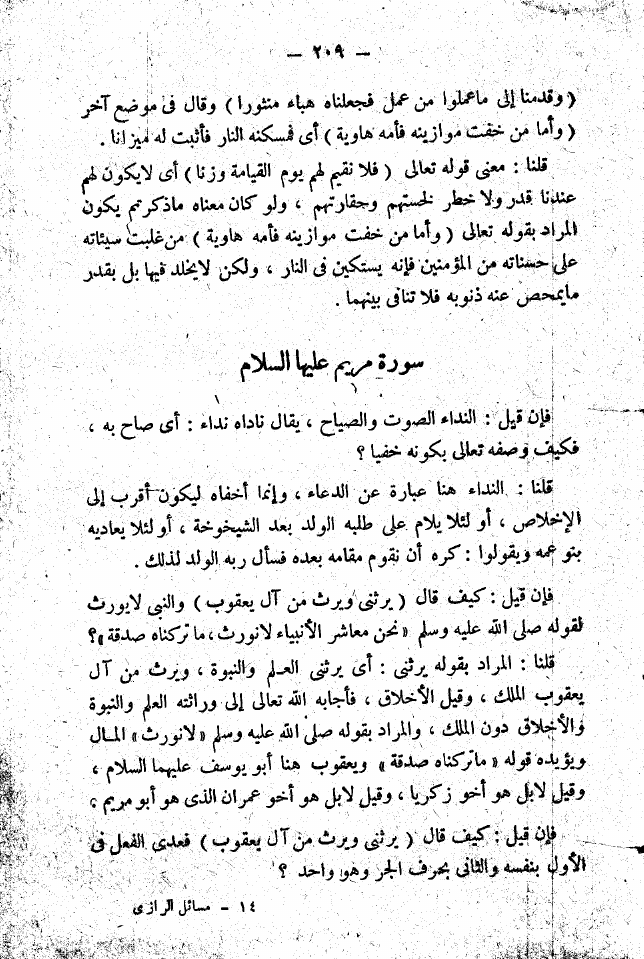 — ٢٠٩ —
( وقدمنا إلى ماعملوا من عمل فجعلناه هباء منثورا ) وقال فى موضع آخر
( وأما من خفت موازينه فأمه هاوية ) أى فمسكنه النار فأثبت له ميزانا .
قلنا : معنى قوله تعالى ( فلا نقيم لهم يوم القيامة وزنا ) أى لايكون لهم
عندنا قدر ولا خطر لخستهم وحقارتهم ، ولو كان معناه ماذكرتم يكون
المراد بقوله تعالى ( وأما من خفت موازينه فأمه هاوية ) من غلبت سيئاته
على حسناته من المؤمنين فإنه يستكين فى النار ، ولكن لايخلد فيها بل بقدر
مايمحص عنه ذنوبه فلا تنافى بينهما .
سورة مريم عليها السلام
فإن قيل : النداء الصوت والصياح ، يقال ناداه نداء : أى صاح به ،
فكيف وصفه تعالى بكونه خفيا ؟
قلنا : النداء هنا عبارة عن الدعاء ، وإنما أخفاه ليكون أقرب إلى
الإخلاص ، أو لئلا يلام على طلبه الولد بعد الشيخوخة ، أو لئلا يعاديه
بنو عمه ويقولوا : كره أن نقوم مقامه بعده فسأل ربه الولد لذلك .
فإن قيل : كيف قال ( يرثنى ويرث من آل يعقوب ) والنبى لايورث
لقوله صلى الله عليه وسلم « نحن معاشر الأنبياء لانورث ، ماتركناه صدقة » ؟
قلنا : المراد بقوله يرثنى : أى يرثنى العلم والنبوة ، ويرث من آل
يعقوب الملك ، وقيل الأخلاق ، فأجابه الله تعالى إلى وراثته العلم والنبوة
والأخلاق دون الملك ، والمراد بقوله صلى الله عليه وسلم « لانورث » المال
ويؤيده قوله « ماتركناه صدقة » ويعقوب هنا أبو يوسف عليهما السلام ،
وقيل لابل هو أخو زكريا ، وقيل لابل هو أخو عمران الذى هو أبو مريم ،
فإن قيل : كيف قال ( يرثنى ويرث من آل يعقوب ) فعدى الفعل فى
الأول بنفسه والثانى بحرف الجر وهو واحد ؟
١٤ - مسائل الرازى